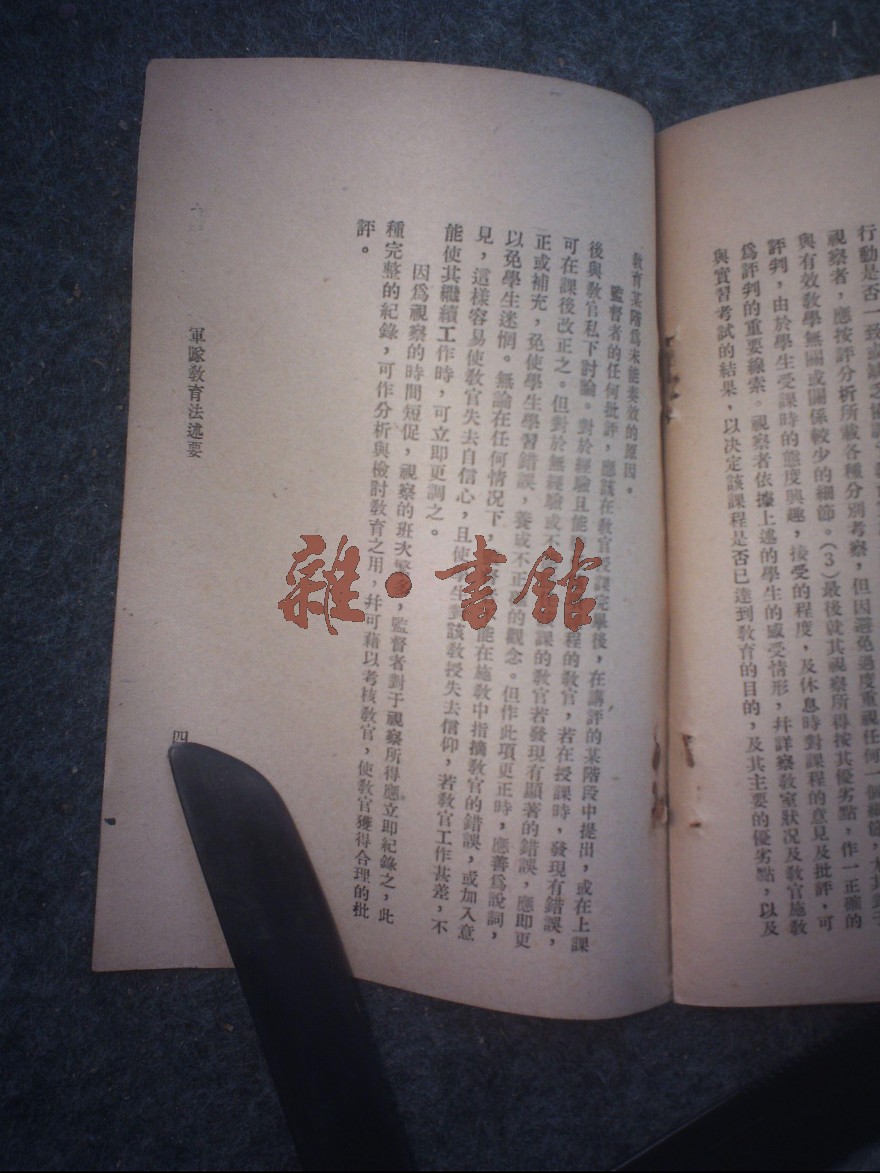 行動是否一致或缺乏
視察者，應按評分析所載各種分別考察，但因避免過度重視任何一個細節，尤其對于
與有效教學無關或關係較少的細節。(3)最後就其視察所得按其優劣點，作一正確的
評判，由於學生受課時的態度興趣，接受的程度，及休息時對課程的意見及批評，可
爲評判的重要線索。視察者依據上述的學生的感受情形，幷詳察教室狀況及教官施教
與實習考試的結果，以決定該課程是否已達到教育的目的，及其主要的優劣點，以及
教育某階爲未能奏效的原因。
監督者的任何批評，應該在教官授課完畢後，在講評的某階段中提出，或在上課
後與教官私下討論。對於經驗且能 程的教官，若在授課時，發現有錯誤，
可在課後改正之。但對於無經驗或不 課的教官若發現有顯著的錯誤，應即更
正或補充，免使學生學習錯誤，養成不正確的觀念。但作此項更正時，應善爲說詞，
以免學生迷惘。無論在任何情況下， 能在施教中指摘教官的錯誤，或加入意
見，這樣容易使教官失去自信心，且使學生對該教授失去信仰，若教官工作甚差，不
能使其繼續工作時，可立即更調之。
因爲視察的時間短促，視察的班次繁多，監督者對于視察所得應立即紀錄之，此
種完整的紀錄，可作分析與檢討教育之用，幷可藉以考核教官，使教官獲得合理的批
評。
軍隊教育法述要
四
雜·書館